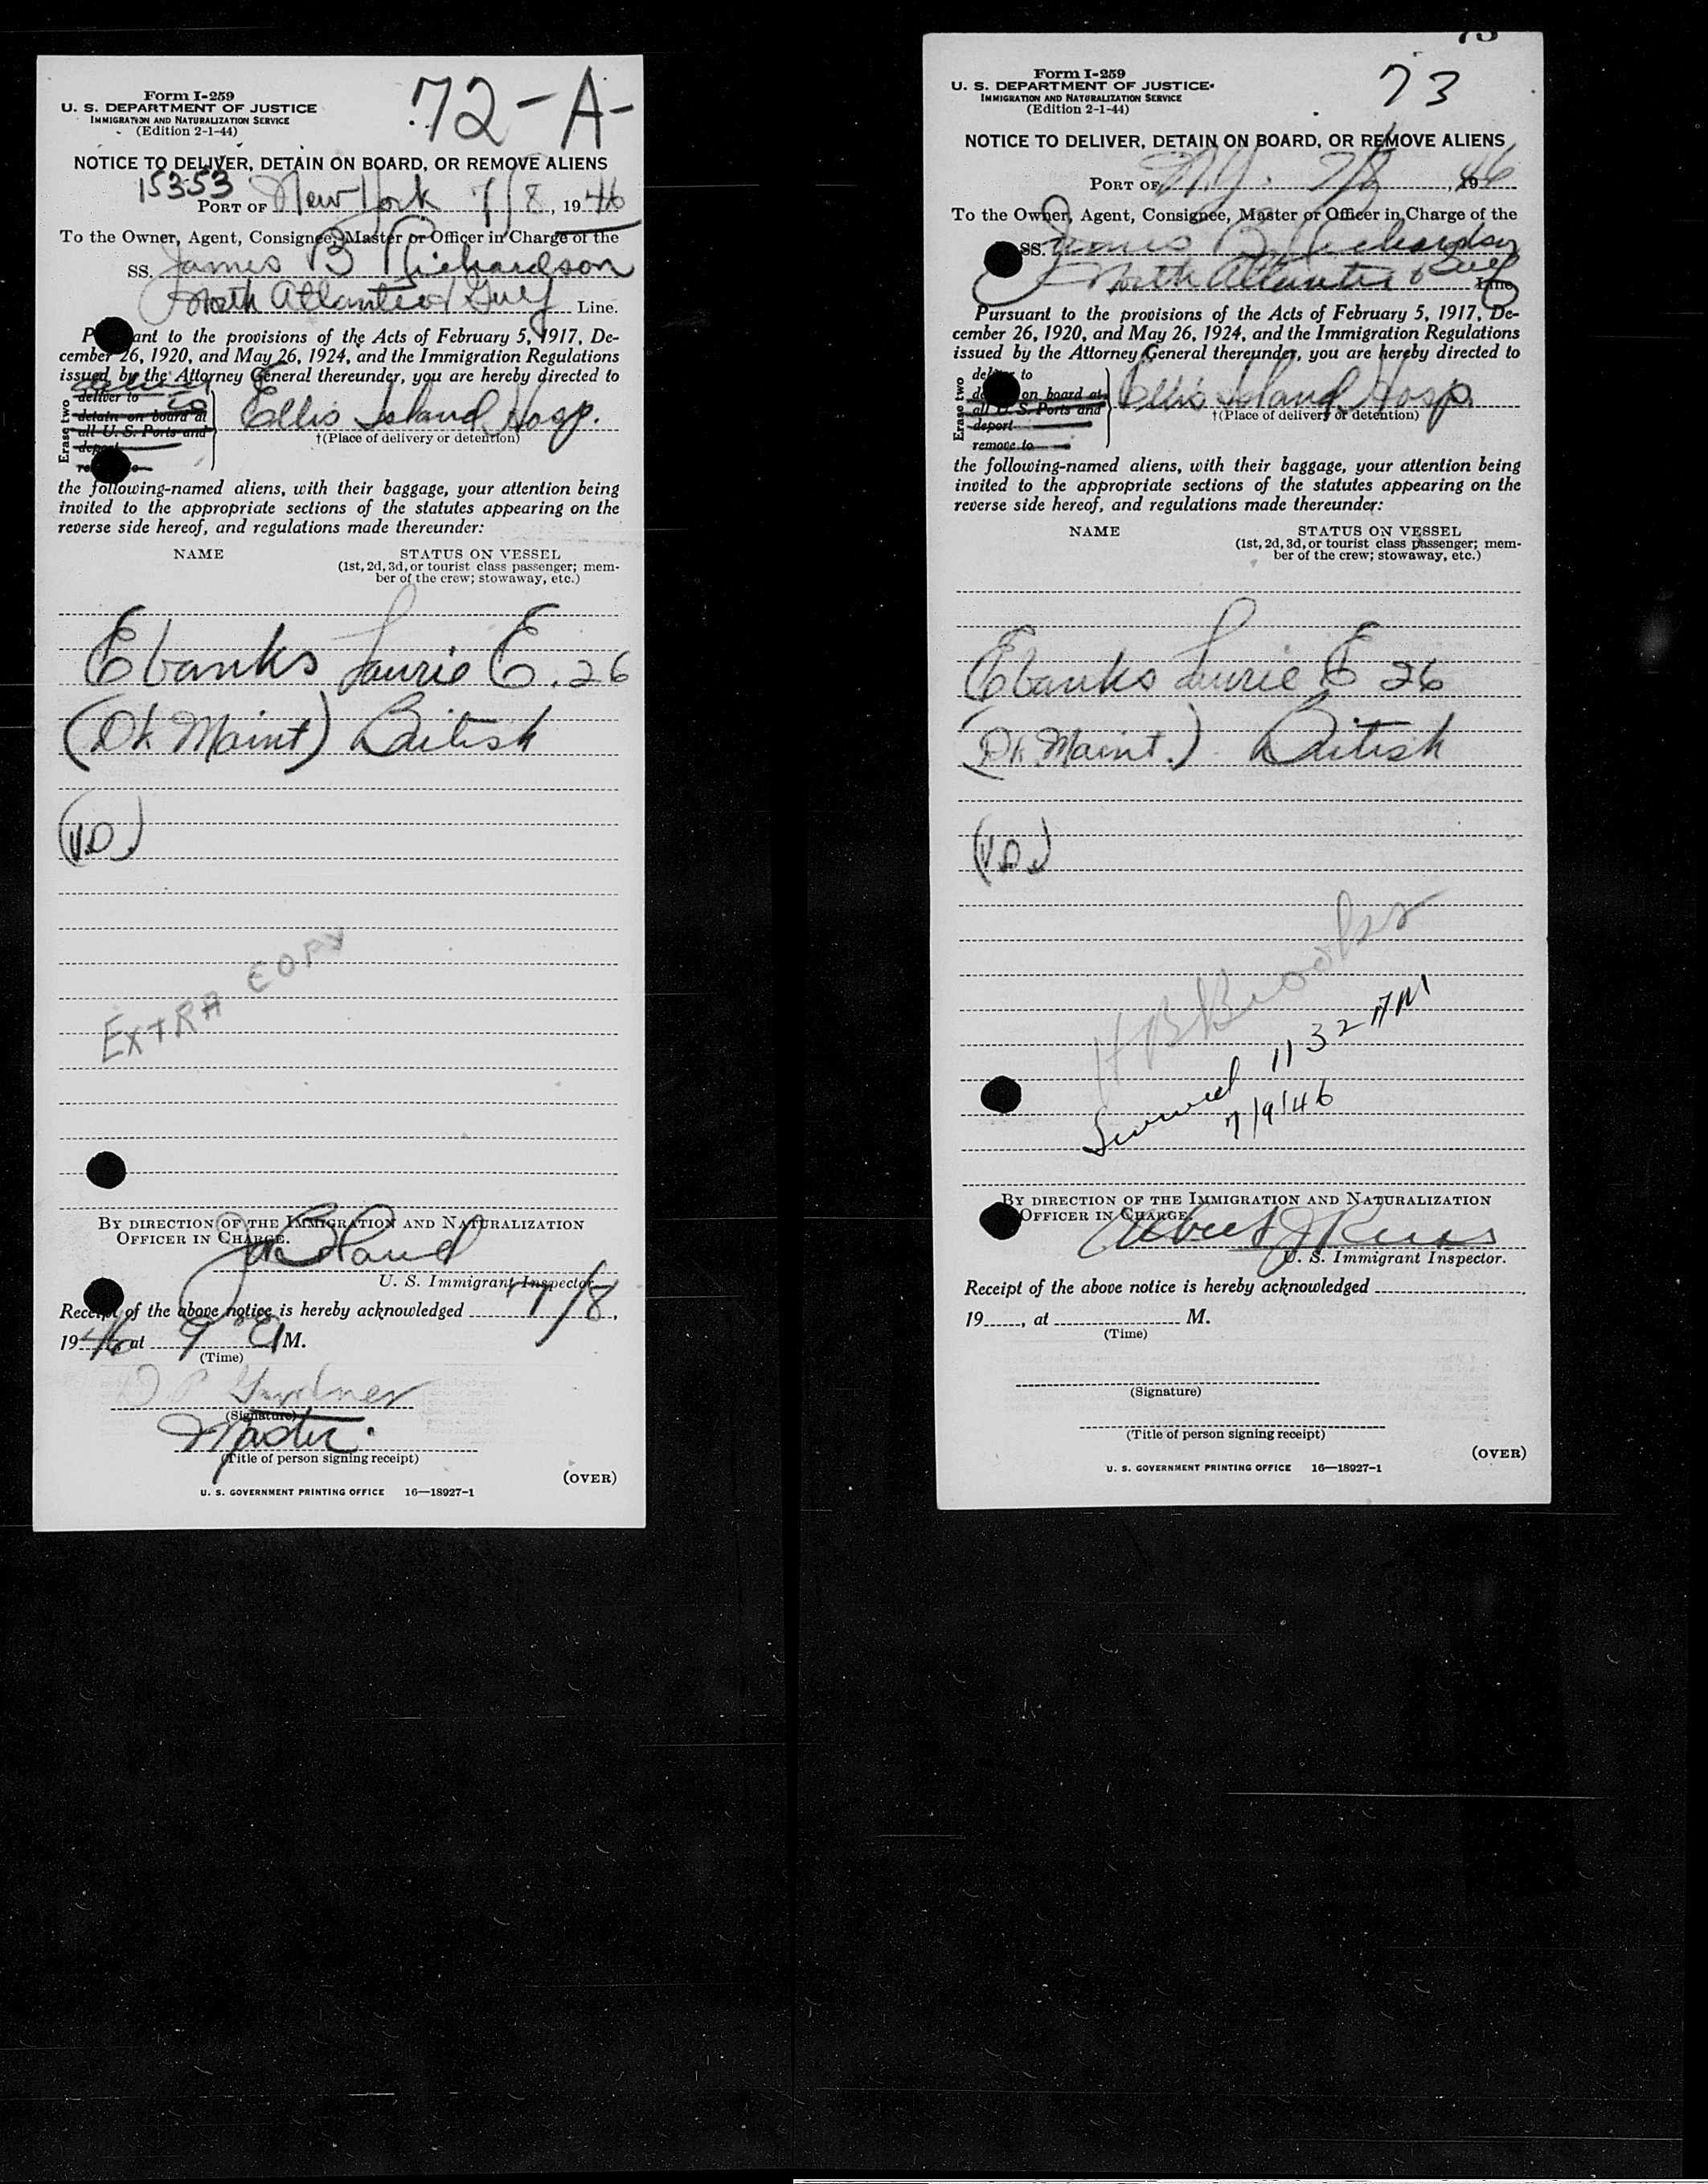 Form I-259
U. S. DEPARTMENT OF JUSTICE
IMMIGRATION AND NATURALIZATION SERVICE
(Edition 2-1-44)
72-A-
NOTICE TO DELIVER, DETAIN ON BOARD, OR REMOVE ALIENS
15353
PORT OF New York 7/8, 1946
To the Owner, Agent, Consignee, Master or Officer in Charge of the
SS. James B Richardson
North Atlantic & Gulf Line.
P ant to the provisions of the Acts of February 5, 1917, De-
cember 26, 1920, and May 26, 1924, and the Immigration Regulations
issued by the Attorney General thereunder, you are hereby directed to
deliver to
Erase two
deliver to
detain on board at
all U. S. Ports and
deport
Ellis Island Hosp.
†(Place of delivery or detention)
the following-named aliens, with their baggage, your attention being
invited to the appropriate sections of the statutes appearing on the
reverse side hereof, and regulations made thereunder:
NAME STATUS ON VESSEL
(1st, 2d, 3d, or tourist class passenger; mem-
ber of the crew; stowaway, etc.)
Ebanks Laurie E. 26
(Dk Maint) British
(V.D.)
EXTRA COPY
BY DIRECTION OF THE IMMIGRATION AND NATURALIZATION
OFFICER IN CHARGE.
U. S. Immigrant Inspector.
Receipt of the above notice is hereby acknowledged 7/8,
1946 at 9 M.
(Time)
Gardner
(Signature)
Master.
(Title of person signing receipt)
(OVER)
U. S. GOVERNMENT PRINTING OFFICE 16—18927-1
73
Form I-259
U. S. DEPARTMENT OF JUSTICE
IMMIGRATION AND NATURALIZATION SERVICE
(Edition 2-1-44)
73
NOTICE TO DELIVER, DETAIN ON BOARD, OR REMOVE ALIENS
PORT OF N.Y. 7/8, 1946
To the Owner, Agent, Consignee, Master or Officer in Charge of the
SS. James B Richardson
North Atlantic & Gulf Line
Pursuant to the provisions of the Acts of February 5, 1917, De-
cember 26, 1920, and May 26, 1924, and the Immigration Regulations
issued by the Attorney General thereunder, you are hereby directed to
Erase two
deliver to
on board at
all U. S. Ports and
deport
remove to
Ellis Island Hosp.
†(Place of delivery or detention)
the following-named aliens, with their baggage, your attention being
invited to the appropriate sections of the statutes appearing on the
reverse side hereof, and regulations made thereunder:
NAME STATUS ON VESSEL
(1st, 2d, 3d, or tourist class passenger; mem-
ber of the crew; stowaway, etc.)
Ebanks Laurie E 26
(Dk Maint.) British
(V.D.)
H B Brooks
11 32 AM
7/9/46
BY DIRECTION OF THE IMMIGRATION AND NATURALIZATION
OFFICER IN CHARGE.
Albert J
U. S. Immigrant Inspector.
Receipt of the above notice is hereby acknowledged
19, at M.
(Time)
(Signature)
(Title of person signing receipt)
(OVER)
U. S. GOVERNMENT PRINTING OFFICE 16—18927-1